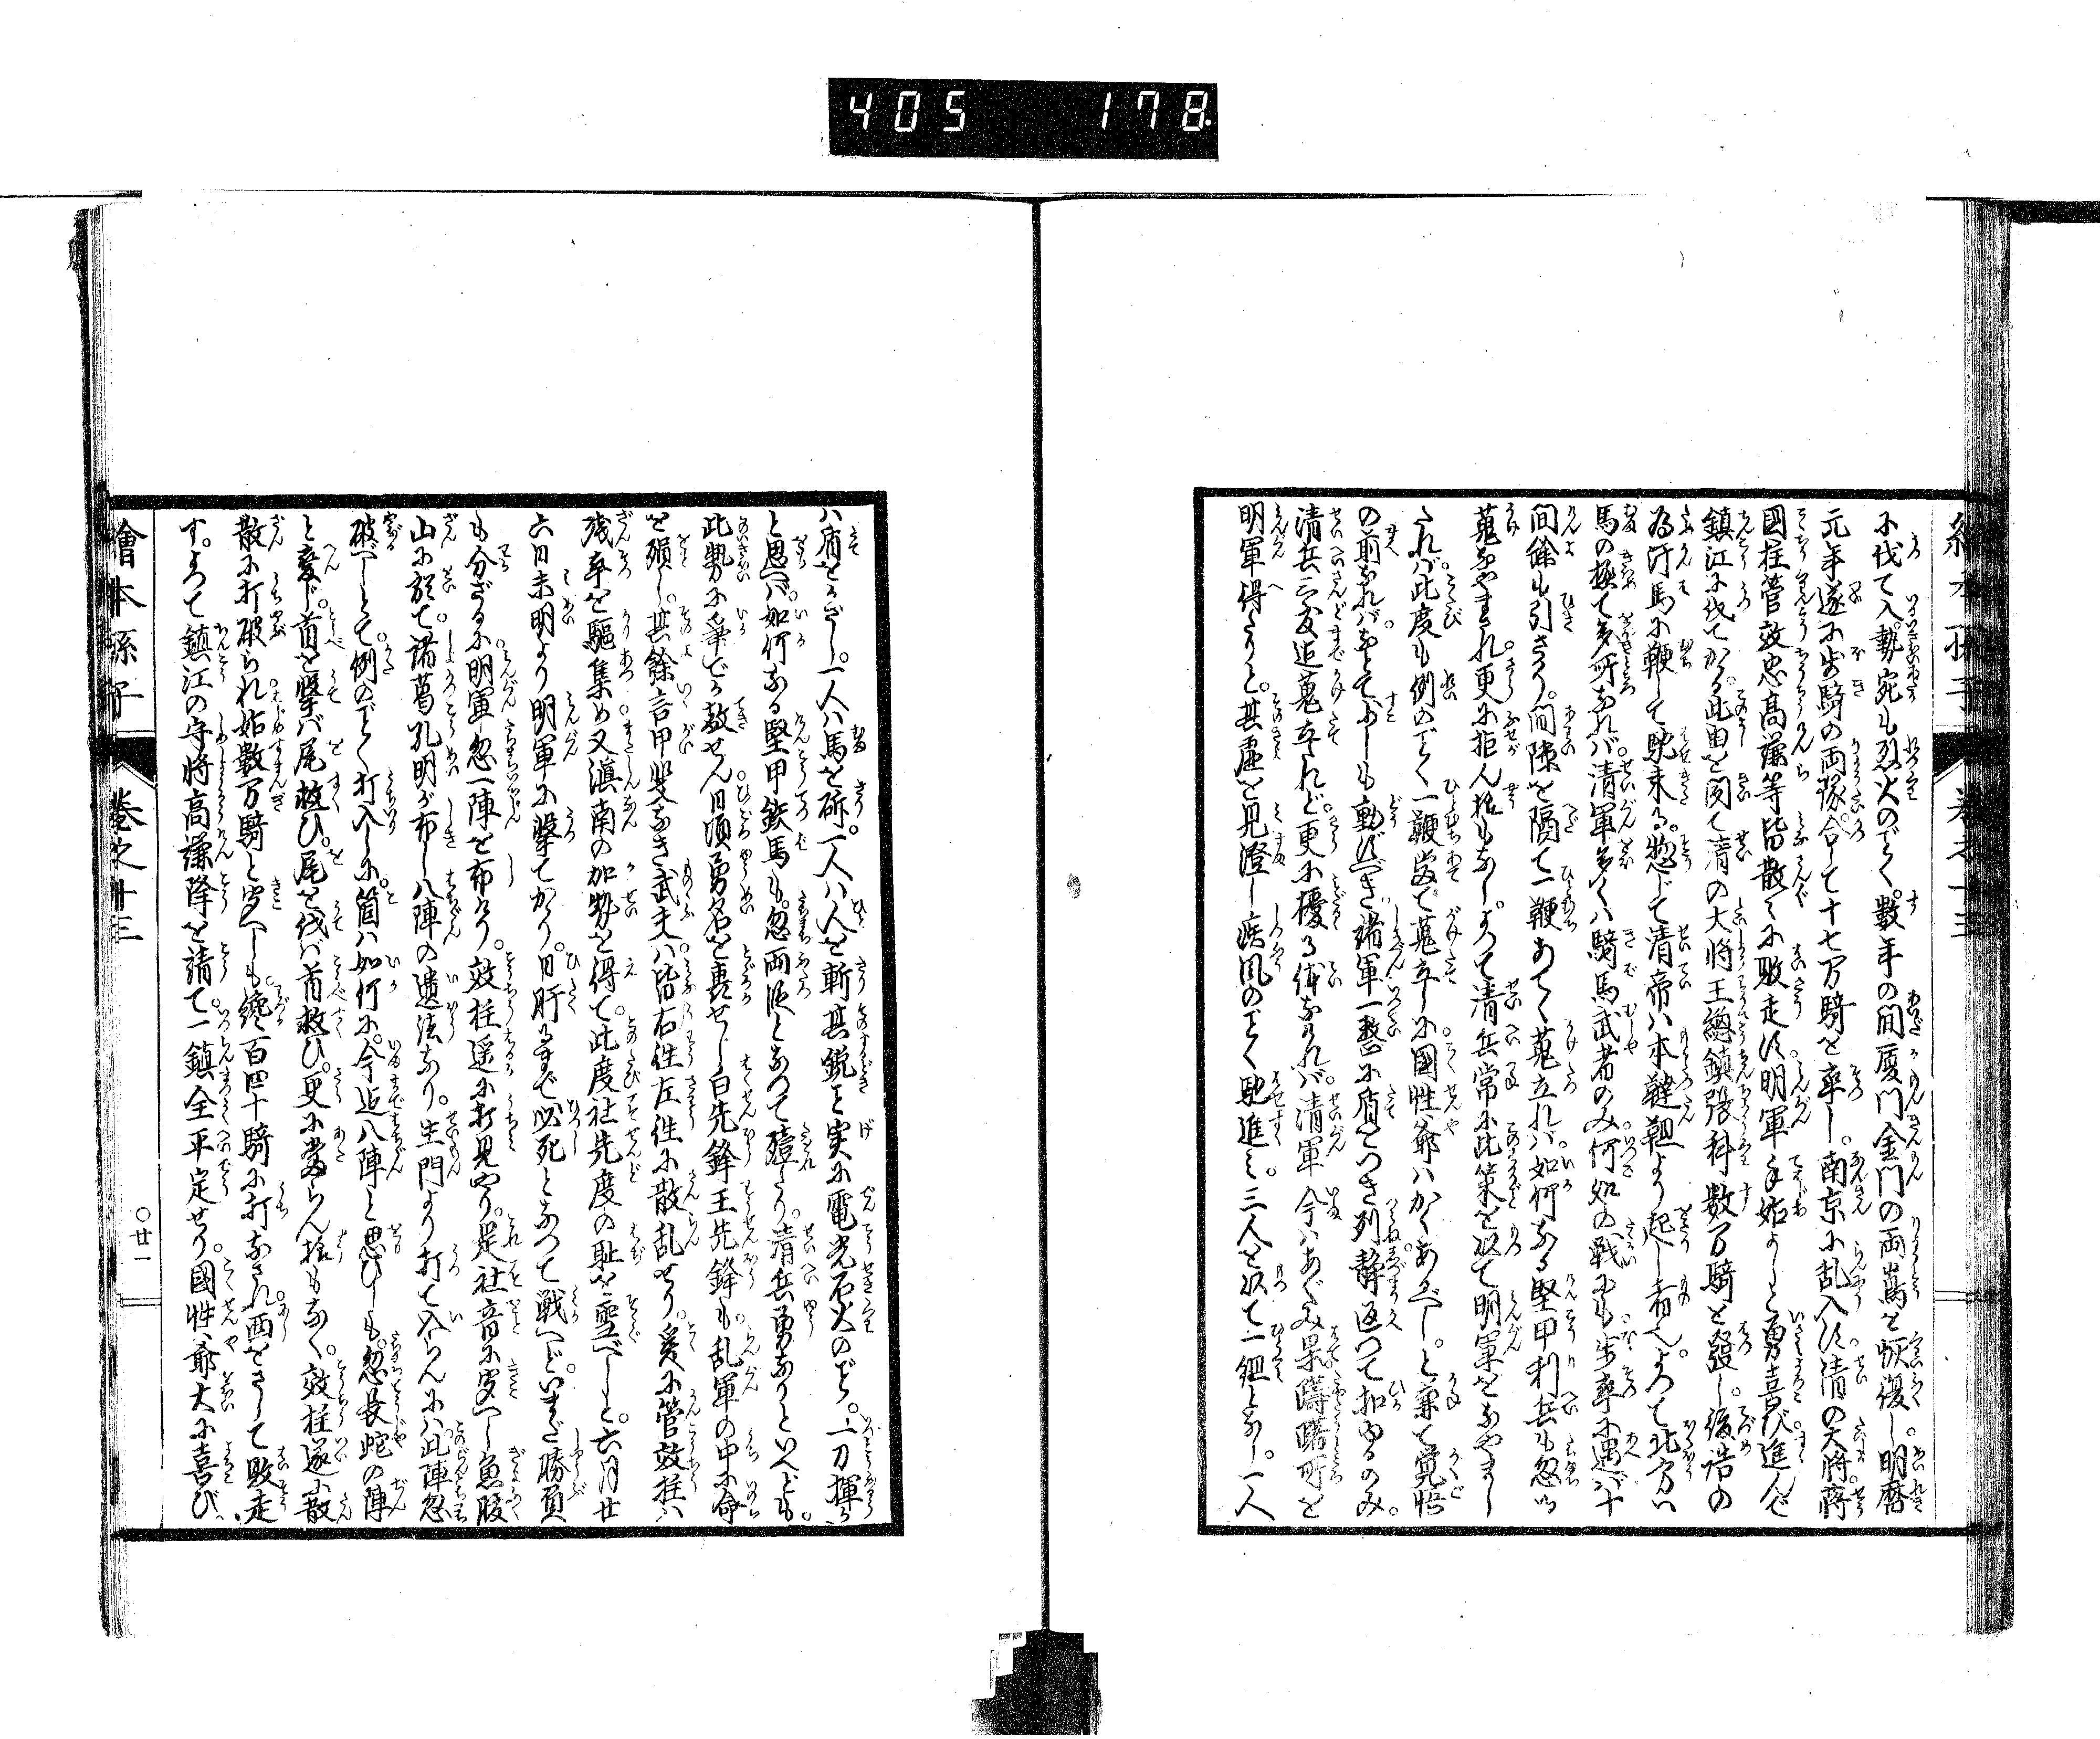 405 178.
に伐て入勢宛も烈火のごとく。数年の間厦門金門の両嶌を恢復し。明暦
元年遂に歩騎の両隊合して十七万騎を率し。南京に乱入す清の大将蒋
國柱管效忠高謙等皆散々に敗走す明軍手始よしと勇喜び進んで
鎮江に伐てかゝる此由を聞て清の大将王總鎮張科数万騎を發し。後詰の
為汗馬に鞭して馳来る。惣じて清帝ハ本韃靼より起し者也。よつて北方ハ
馬の極て多所なれバ。清軍多くハ騎馬武者のみ何処の戦にも歩卒に遇バ十
間餘も引さり。間隙を隔て一鞭あてゝ蒐立れバ如何なる堅甲利兵も忽ち
蒐なやまされ。更に拒ん様もなし。よつて清兵常に此策を以て明軍をなやまし
たれバ此度も例のごとく一鞭当て蒐立しに國性爺ハかくあるべし。と兼て覚悟
の前なれバ。なとて少しも動ずべき。諸軍一整に盾をつき列静返つて扣ゆるのみ。
清兵三度迄蒐立れど。更に擾る体なけれバ。清軍今ハあぐみ果躊躇所を
明軍得たりと。其虚を見澄し疾風のごとく馳進み。三人を以て一組となし。一人
ハ盾をかざし。一人ハ馬を斫。一人ハ人を斬其鋭こと実に電光石火のごとし。一刀揮ふ
と思へバ如何なる堅甲鉄馬も。忽両段となつて殪たり。清兵勇なりといへども。
此勢に争でか敵せん。日頃勇名を轟せし白先鋒王先鋒も。乱軍の中に命
を殞し。其餘言甲斐なき武夫ハ皆右往左往に散乱せり。爰に管效柱ハ
残卒を驅集め又滇南の加勢を得て。此度社先度の耻を雪べしと。六月廿
六日未明より明軍に撃てかゝり。日旰るまで必死となつて戦へど。いまだ勝負
も分ざるに明軍忽一陣を布けり。效柱遥に打見やり。是社音に聞へし魚腹
山に於て。諸葛孔明が布し八陣の遺法なり。生門より打て入らんにハ此陣忽
破べしとて。例のごとく打入しに。箇ハ如何に。今迄八陣と思ひしも。忽長蛇の陣
と変じ。首を撃バ尾救ひ。尾を伐バ首救ひ。更に当らん様もなく。效柱遂に散
散に打破られ始数万騎と聞へしも。纔百四十騎に打なされ。西をさして敗走
す。よつて鎮江の守将高謙降を請て。一鎮全平定せり。國性爺大に喜び
繪本孫子
巻之十三
〇廿一